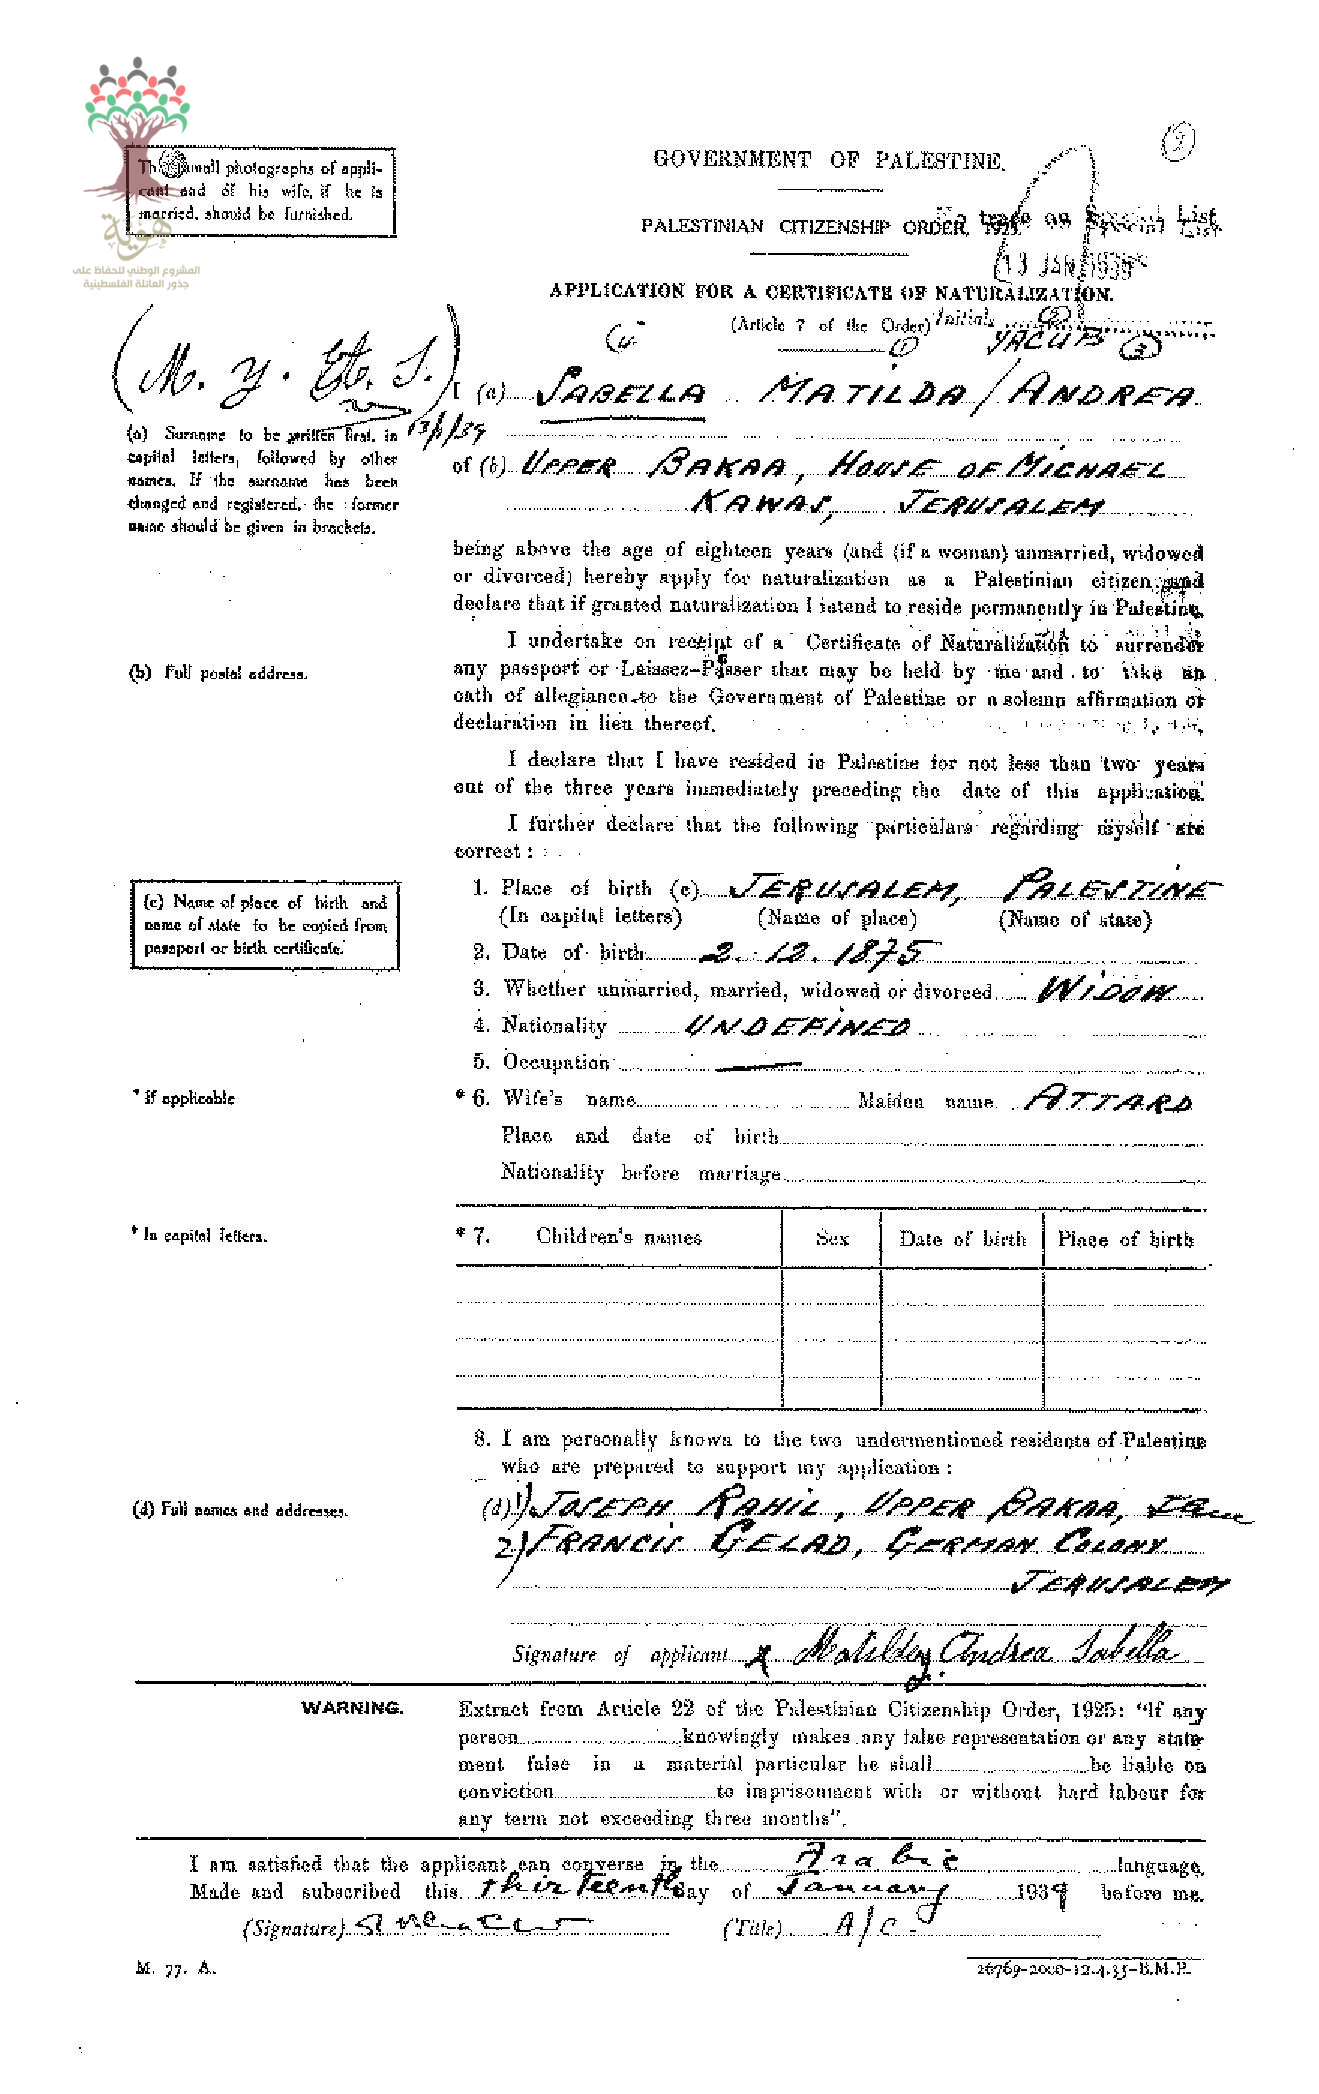 هوية
المشروع الوطني للحفاظ على
جذور العائلة الفلسطينية
small photographs of appli-
cant and of his wife, if he is
married, should be furnished.
2
GOVERNMENT OF PALESTINE.
PALESTINIAN CITIZENSHIP ORDER, 1925.
No trace on Special List
13 JAN 1939
APPLICATION FOR A CERTIFICATE OF NATURALIZATION.
(Article 7 of the Order)
Initials
YACUB
(M. Y.
13/1/39
I (a) SABELLA MATILDA / ANDREA
(a) Surname to be written first, in
capital letters, followed by other
names. If the surname has been
changed and registered, the former
name should be given in brackets.
of (b) UPPER BAKAA, HOUSE OF MICHAEL
KAWAS, JERUSALEM
being above the age of eighteen years (and (if a woman) unmarried, widowed
or divorced) hereby apply for naturalization as a Palestinian citizen and
declare that if granted naturalization I intend to reside permanently in Palestine.
I undertake on receipt of a Certificate of Naturalization to surrender
(b) Full postal address.
any passport or Laissez-Passer that may be held by me and to take an
oath of allegiance to the Government of Palestine or a solemn affirmation or
declaration in lieu thereof.
I declare that I have resided in Palestine for not less than two years
out of the three years immediately preceding the date of this application.
I further declare that the following particulars regarding myself are
correct :
(c) Name of place of birth and
name of state to be copied from
passport or birth certificate.
1. Place of birth (c) JERUSALEM, PALESTINE
(In capital letters) (Name of place) (Name of state)
2. Date of birth 2. 12. 1875
3. Whether unmarried, married, widowed or divorced WIDOW
4. Nationality UNDEFINED
5. Occupation —
* if applicable
* 6. Wife's name Maiden name ATTARD
Place and date of birth
Nationality before marriage
* In capital letters.
* 7. Children's names Sex Date of birth Place of birth
8. I am personally known to the two undermentioned residents of Palestine
who are prepared to support my application :
(d) Full names and addresses.
(d) 1) JOSEPH RAHIL, UPPER BAKAA,
2) FRANCIS GELAD, GERMAN COLONY
JERUSALEM
Signature of applicant x Matilda Andrea Sabella
WARNING.
Extract from Article 22 of the Palestinian Citizenship Order, 1925: "If any
person knowingly makes any false representation or any state
ment false in a material particular he shall be liable on
conviction to imprisonment with or without hard labour for
any term not exceeding three months".
I am satisfied that the applicant can converse in the Arabic language.
Made and subscribed this thirteenth day of January 1939 before me.
(Signature) (Title) A/C.
M. 77. A. 26769-2000-12.4.35-B.M.P.